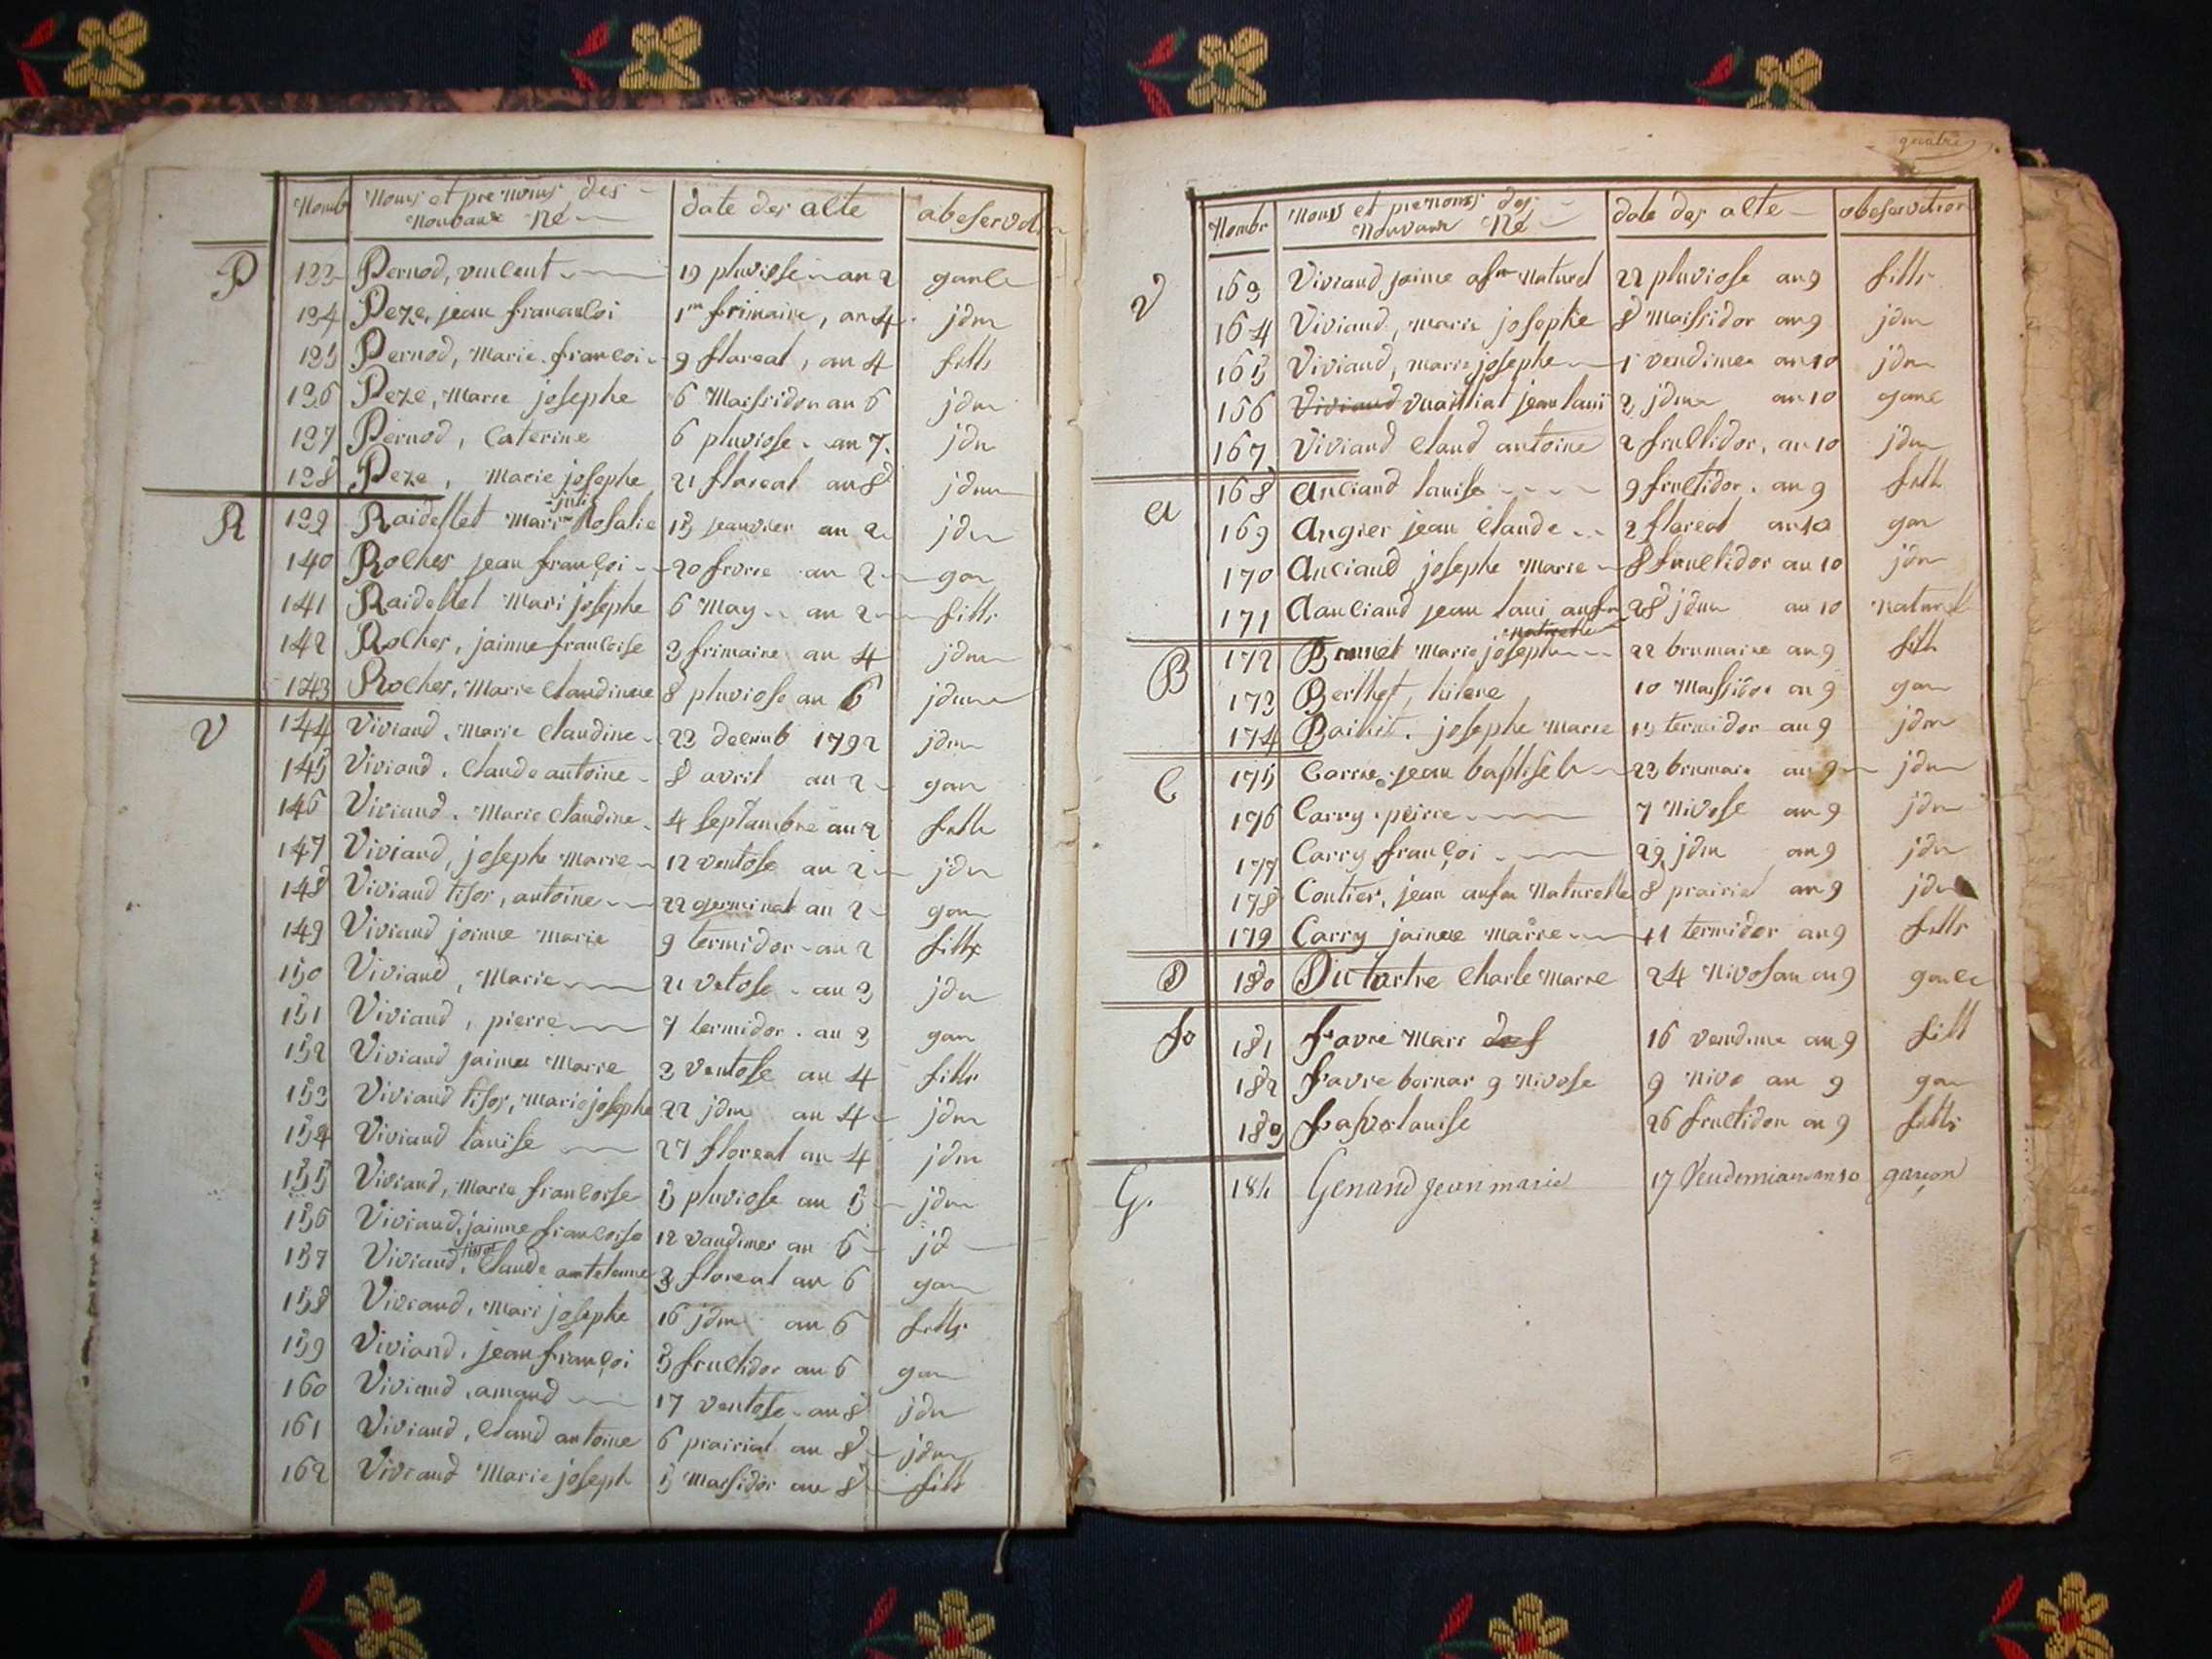 Nomb Noms et prenoms des date des alte abeservati
Nouvaux Né
P
133 Pernod, vincent 13 pluviose an 2
134 Peze, jean francaoi 1er frimaire, an 4 jdm
135 Pernod, Marie francoi 9 floreal, an 4 fills
136 Peze, Marie josephe 6 Maissidor an 6 jdm
137 Pernod, Caterine 6 pluviose an 7 jdm
138 Peze, Marie josephe 21 floreal an 8 jdm
R
139 Raidellet Marie Rosalie 15 jeanvier an 2 jdm
140 Rocher jean françoi 20 an 2 gan
141 Raidellet Mari josephe 6 May an 2 fills
142 Rocher, jainne francoise 3 frimaire an 4 jdm
143 Rocher, Marie Claudinne 8 pluviose an 6 jdm
V
144 Viviand, Marie Claudine 23 decemb 1792 jdm
145 Viviand, Claude antoine 8 avril an 2 gan
146 Viviand, Marie Claudine 4 septambre an 2 fills
147 Viviand, josephe Marie 12 ventose an 2 jdm
148 Viviand tisor, antoine 22 germinal an 2 gan
149 Viviand joinne Marie 9 termidor an 2 fills
150 Viviand, Marie 21 vetose an 3 jdm
151 Viviand, pierre 7 termidor an 3 gan
152 Viviand jaime Marie 3 ventose an 4 fills
153 Viviand tisor, Marie josephe 22 jdm an 4 jdm
154 Viviand lauise 27 floreal an 4 jdm
155 Viviand, Marie francoise 5 pluviose an 5 jdm
156 Viviand, jainne francoise 12 vandimer an 6 jd
tisor
157 Viviand, Claude 3 floreal an 6 gan
158 Viviand, Mari josephe 16 jdm an 6 fills
159 Viviand, jean françoi 5 fructidor an 6 gan
160 Viviand, amand 17 ventose an 8 jdm
161 Viviand, Claud antoine 6 prairial an 8 jdm
162 Viviand Marie joseph 5 Massidor an 8 fill
quatre
Nombr Noms et prenoms des date des alte obeservation
Nouvaux Né
V
163 Viviand jaime naturel 22 pluviose an 9 fills
164 Viviand, Marie josephe 8 Maissidor an 9 jdm
165 Viviand, marie josephe 1 vendimea an 10 jdm
166 Viviand vuailliat jean laui 3 jdm an 10
167 Viviand Claud antoine 2 fructidor, an 10 jdm
A
168 Anciand lauise 9 fructidor an 9 fill
169 Angier jean Claude 2 floreal an 10 gan
170 Anciand josephe Marie 8 fructidor an 10 jdm
171 Aanciand jean laui 28 jdm an 10 naturel
naturelle
B
172 Brunet Marie josephe 22 brumaire an 9 fill
173 Berthet, hilere 10 Massidor an 9 gan
174 josephe Marie 15 termidor an 9 jdm
C
175 Carrie jean baptiseb 23 brumaire an 9 jdm
176 Carry peirre 7 Nivose an 9 jdm
177 Carry françoi 29 jdm an 9 jdm
178 Coutier, jean Naturelle 8 prairial an 9 jdm
179 Carry jainne Marie 11 termidor an 9 fills
D
180 Dutartre Charle Marie 24 Nivosan an 9
f
181 favre Mari 16 vendime an 9 fill
182 favre bernar 9 nivose 9 nivo an 9 gan
183 lauise 26 fructidor an 9 fills
G.
184 Genand jean marie 17 Vendemiaire an 10 garçon